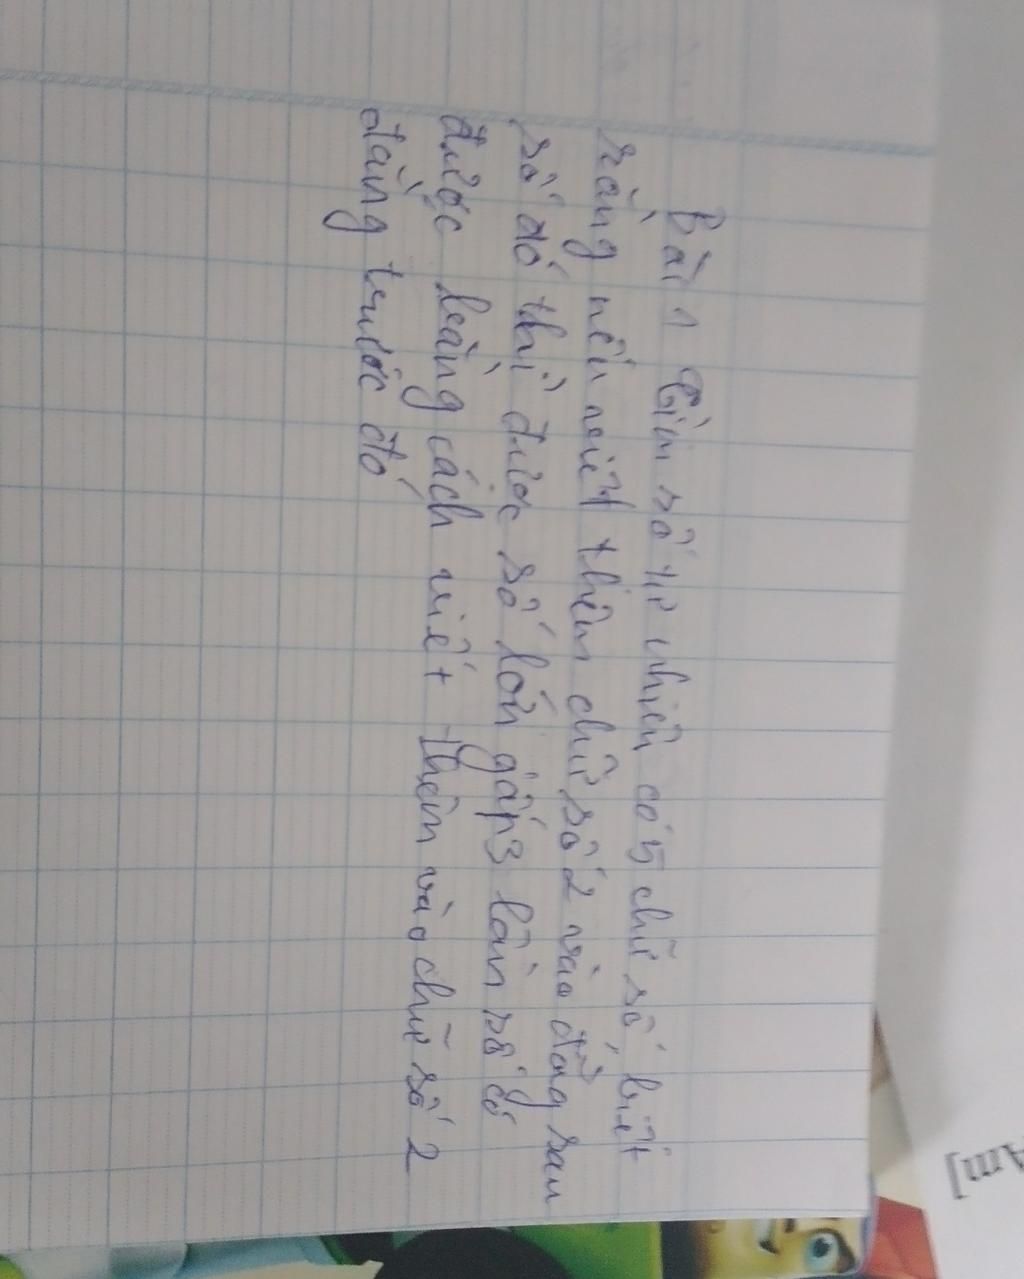 Bài 1 Tìm số tự nhiên có 5 chữ số, biết
rằng nếu viết thêm chữ số 2 vào đằng sau
số đó thì được số lớn gấp 3 lần số có
được bằng cách viết thêm vào chữ số 2
đằng trước đó
Am]